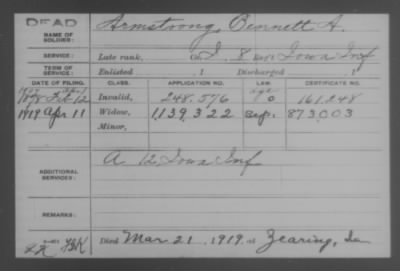 DEAD
NAME OF SOLDIER: Armstrong, Bennett A.
SERVICE: Late rank, Co. I, 8 Reg't Iowa Inf
TERM OF SERVICE: Enlisted , 1 Discharged , 1
DATE OF FILING. CLASS. APPLICATION NO. LAW. CERTIFICATE NO.
Feb 12 Invalid, 248,576 161,248
1919 Apr 11 Widow, 1,139,322 873,003
Minor,
ADDITIONAL SERVICES: A 12 Iowa Inf
REMARKS:
Died Mar 21, 1919, at Zearing, Ia